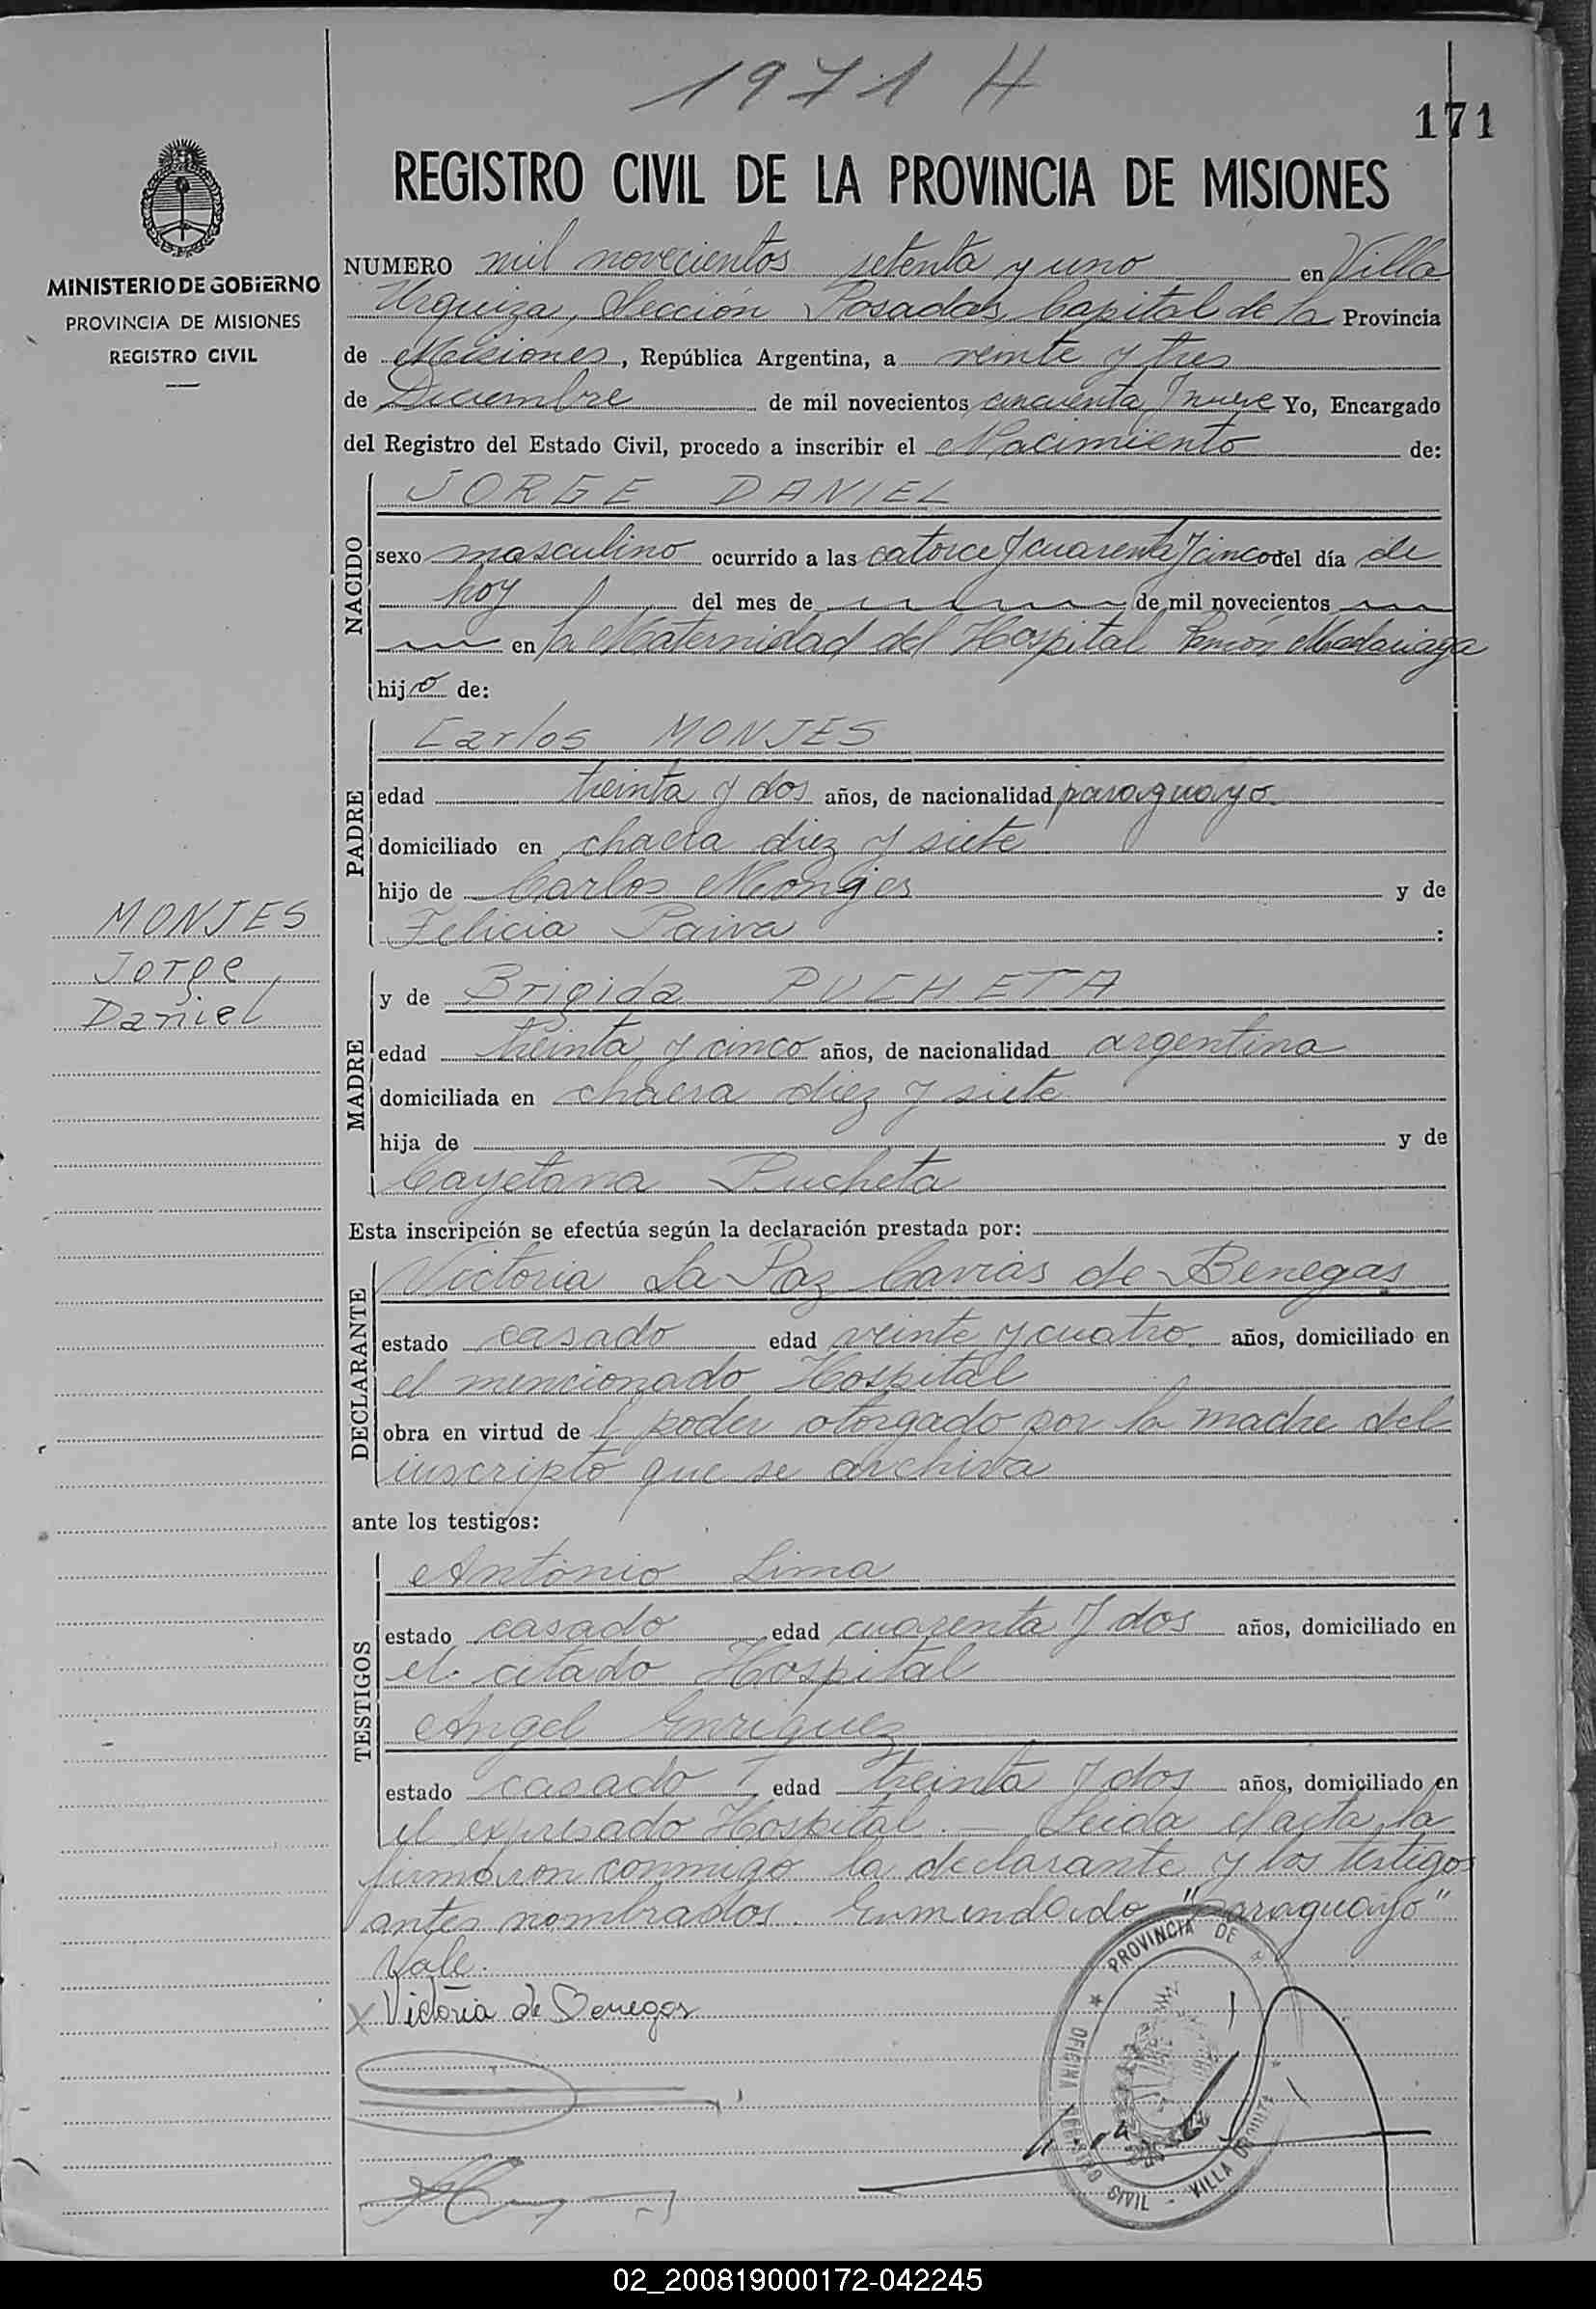 1971 H
171
REGISTRO CIVIL DE LA PROVINCIA DE MISIONES
MINISTERIO DE GOBIERNO
PROVINCIA DE MISIONES
REGISTRO CIVIL
NUMERO mil novecientos setenta y uno en Villa
Urquiza, Sección Posadas, Capital de la Provincia
de Misiones, República Argentina, a veinte y tres
de Diciembre de mil novecientos cincuenta y nueve Yo, Encargado
del Registro del Estado Civil, procedo a inscribir el Nacimiento de:
NACIDO
JORGE DANIEL
sexo masculino ocurrido a las catorce y cuarenta y cinco del día de
hoy del mes de de mil novecientos
en la Maternidad del Hospital Ramón Madariaga
hijo de:
PADRE
Carlos MONJES
edad treinta y dos años, de nacionalidad paraguayo
domiciliado en chacra diez y siete
hijo de Carlos Monjes y de
Felicia Paiva :
MONJES
Jorge
Daniel
MADRE
y de Brigida PUCHETA
edad treinta y cinco años, de nacionalidad argentina
domiciliada en chacra diez y siete
hija de y de
Cayetana Pucheta
Esta inscripción se efectúa según la declaración prestada por:
DECLARANTE
Victoria La Paz Cavias de Benegas
estado casado edad veinte y cuatro años, domiciliado en
el mencionado Hospital
obra en virtud de l poder otorgado por la madre del
inscripto que se archiva
ante los testigos:
TESTIGOS
Antonio Lima
estado casado edad cuarenta y dos años, domiciliado en
el citado Hospital
Angel Enriquez
estado casado edad treinta y dos años, domiciliado en
el expresado Hospital. — Leida el acta la
firmaron conmigo la declarante y los testigos
antes nombrados. Enmendado "paraguayo"
Vale.
X Victoria de Benegas
PROVINCIA DE
OFICINA REGISTRO CIVIL - VILLA URQUIZA
02_200819000172-042245